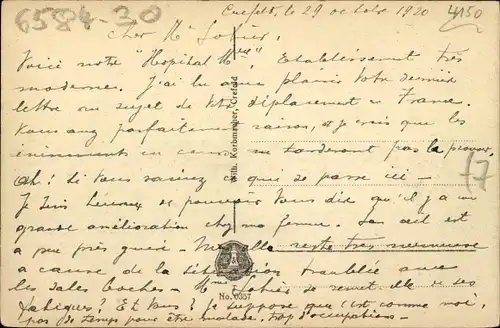 6584-30
Crefeld, le 29 octobre 1920
4/150
Cher Mr
Voici notre "Hopital Mre". Etablissement très
moderne. J'ai lu avec plaisir votre dernière
lettre au sujet de votre déplacement en France.
Vous avez parfaitement raison, et je crois que les
en ne tarderont pas à le prouver.
Ah! si vous saviez ce qui se passe ici —
Je suis heureux de pouvoir vous dire qu'il y a une
grande amélioration chez ma femme. Son œil est
à peu près guéri — elle reste très nerveuse
a cause de la situation troublée avec
les sales boches — Mme se remet elle de ses
fatigues? Et vous? Je suppose que c'est comme moi,
pas de temps pour être malade, trop d'occupations —
17
Wilh. Korbmacher, Crefeld
No. 0357